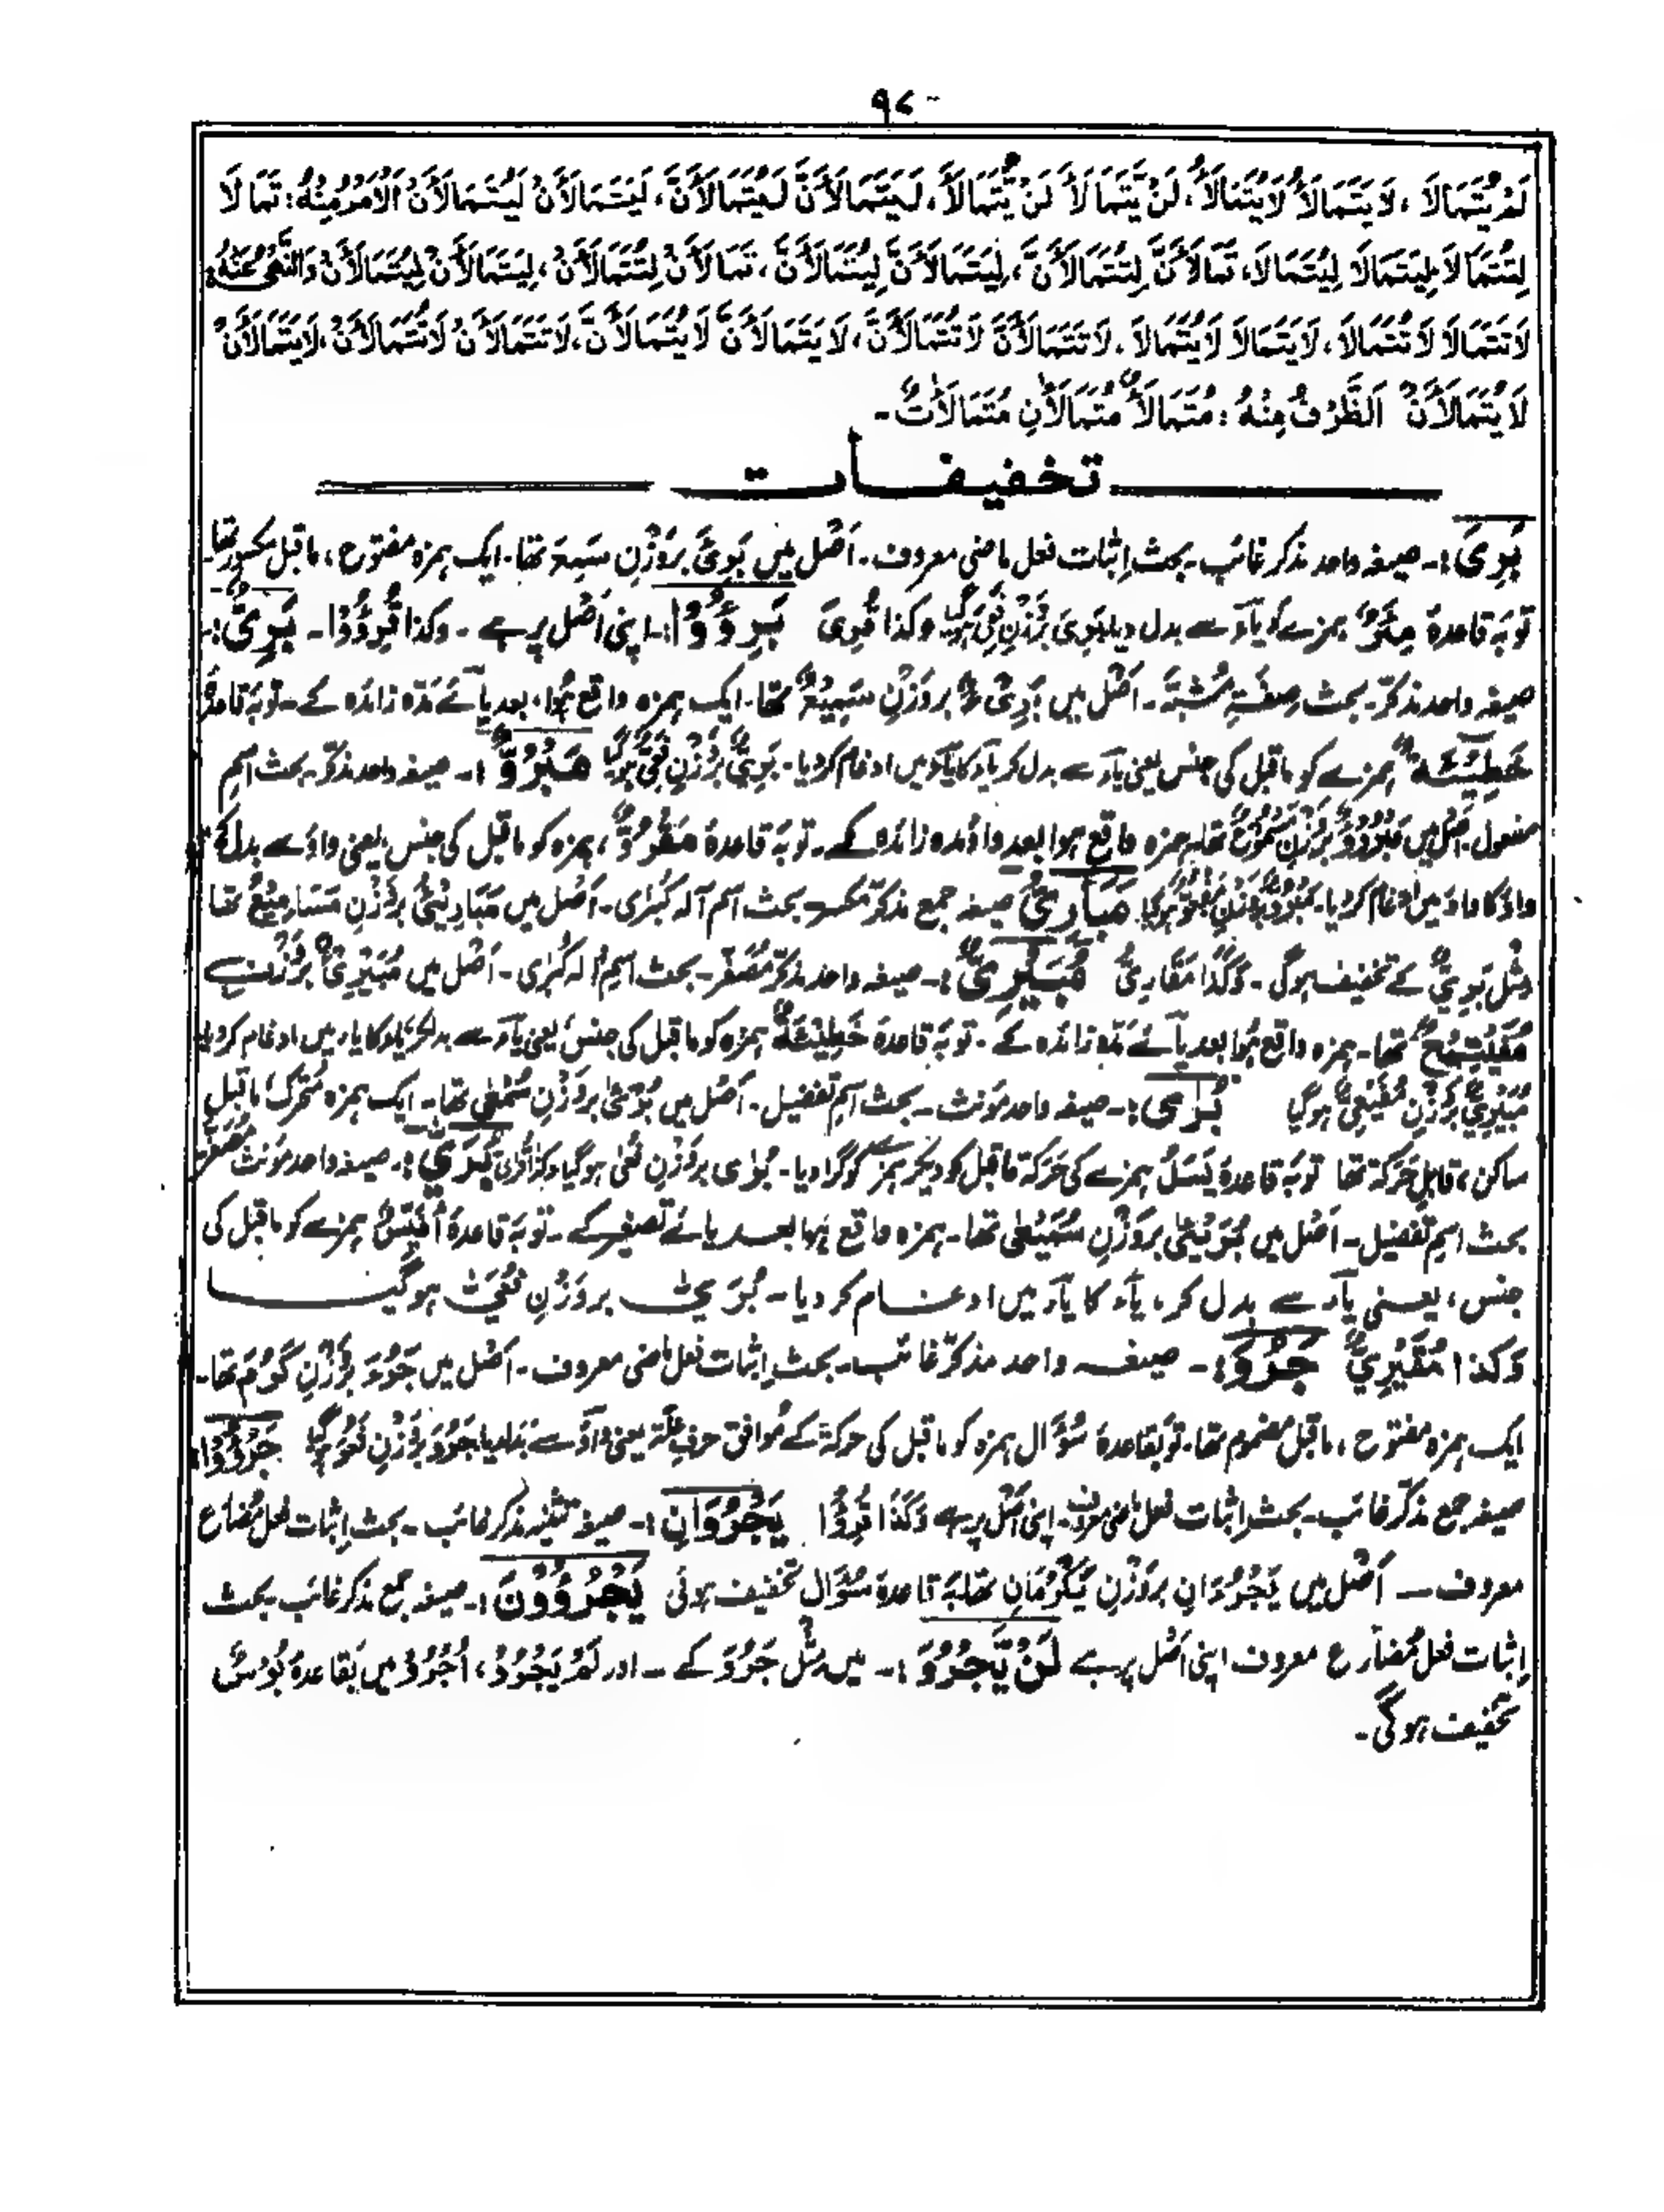 ٩٧
لَمْ یُتَمَالَا، لَا یَتَمَالَأُ لَا یُتَمَالَأُ، لَنْ یَّتَمَالَأَ لَنْ یُّتَمَالَأَ، لَیَتَمَالَأَنَّ لَیُتَمَالَأَنَّ، لَیَتَمَالَأَنْ لَیُتَمَالَأَنْ اَلْاَمْرُ مِنْهُ: تَمَالَا
لِتُتَمَالَا، لِیَتَمَالَا لِیُتَمَالَا، تَمَالَأَنَّ لِتُتَمَالَأَنَّ، لِیَتَمَالَأَنَّ لِیُتَمَالَأَنَّ، تَمَالَأَنْ لِتُتَمَالَأَنْ، لِیَتَمَالَأَنْ لِیُتَمَالَأَنْ وَالنَّهْیُ عَنْهُ:
لَا تَتَمَالَا لَا تُتَمَالَا، لَا یَتَمَالَا لَا یُتَمَالَا، لَا تَتَمَالَأَنَّ لَا تُتَمَالَأَنَّ، لَا یَتَمَالَأَنَّ لَا یُتَمَالَأَنَّ، لَا تَتَمَالَأَنْ لَا تُتَمَالَأَنْ، لَا یَتَمَالَأَنْ
لَا یُتَمَالَأَنْ اَلظَّرْفُ مِنْهُ: مُتَمَالَأٌ مُتَمَالَأَانِ مُتَمَالَأَاتٌ۔
تخفیفات
بَرِیَ:۔ صیغہ واحد مذکر غائب۔ بحث اِثبات فعل ماضی معروف۔ اَصْل میں بَرِئَ بروَزْنِ سَمِعَ تھا۔ ایک ہمزہ مفتوح، ماقبل مکسور تھا۔
تو بَہ قاعدۂ مِئَرٌ ہمزے کو یَآء سے بدل دیا، بَرِیَ بروَزْنِ ہوگیا وکذا قُرِیَ بَرِؤُوْا:۔ اپنی اَصْل پر ہے۔ وکذا قُرِؤُوْا۔ بَرِیٌّ:۔
صیغہ واحد مذکر۔ بحث صِفَتِ مُشَبَّہ۔ اَصْل میں بَرِیْءٌ بروَزْنِ سَمِیْعٌ تھا۔ ایک ہمزہ واقع ہُوا، بعد یائے مَدّہ زائدہ کے۔ تو بَہ قاعدۂ
خَطِیْئَۃٌ ہمزے کو ماقبل کی جنس یعنی یَآء سے بدل کر یَآء کا یَآء میں ادغام کردیا۔ بَرِیٌّ بروَزْنِ ہوگیا مَبْرُوٌّ:۔ صیغہ واحد مذکر۔ بحث اسمِ
مفعول۔ اَصْل میں مَبْرُوْءٌ بروَزْنِ مَسْمُوْعٌ تھا۔ ہمزہ واقع ہوا بعد واؤ مدہ زائدہ کے۔ تو بَہ قاعدۂ مَقْرُوٌّ، ہمزہ کو ماقبل کی جنس، یعنی واؤ سے بدل کر
واؤ کا واؤ میں ادغام کردیا۔ ہوگیا۔ مَبَارِیٌّ صیغہ جمع مذکر مکسر۔ بحث اسم آلہ کبریٰ۔ اَصْل میں مَبَارِیْئُ بروَزْنِ مَسَامِیْعُ تھا
مِثْل بَرِیٌّ کے تخفیف ہوگی۔ وَکَذَا مَقَارِیُّ مُبَیْرِیٌّ:۔ صیغہ واحد مذکر مُصَغَّر۔ بحث اسمِ آلہ کبریٰ۔ اَصْل میں مُبَیْرِیْءٌ بروَزْنِ
تھا۔ ہمزہ واقع ہُوا بعد یائے مَدّہ زائدہ کے۔ تو بَہ قاعدۂ خَطِیْئَۃٌ ہمزہ کو ماقبل کی جنس، یعنی یَآء سے بدل کر یاء کا یاء میں ادغام کردیا۔
مُبَیْرِیٌّ بروَزْنِ ہوگیا بُرٰی:۔ صیغہ واحد مؤنث۔ بحث اسمِ تفضیل۔ اَصْل میں بُرْئٰی بروَزْنِ سُمْعٰی تھا۔ ایک ہمزہ مُتحرک، ماقبل
ساکن، قابلِ حَرَکۃ تھا تو بَہ قاعدۂ یَسَلُ ہمزے کی حَرَکۃ ماقبل کو دیکر ہمزے کو گرا دیا۔ بُرٰی بروَزْنِ ہوگیا وکذا قُرٰی بُرَیٌّ:۔ صیغہ واحد مؤنث مُصَغَّر
بحث اسمِ تفضیل۔ اَصْل میں بُرَیْئٰی بروَزْنِ سُمَیْعٰی تھا۔ ہمزہ واقع ہوا بعد یائے تصغیر کے۔ تو بَہ قاعدۂ اُفَیِّسٌ ہمزے کو ماقبل کی
جنس، یعنی یَآء سے بدل کر، یَآء کا یَآء میں ادغام کردیا۔ بروَزْنِ ہوگیا
وَکَذَا مُقَیْرِیٌّ جَرُوَ:۔ صیغہ واحد مذکر غائب۔ بحث اِثبات فعل ماضی معروف۔ اَصْل میں جَرُءَ بروَزْنِ کَرُمَ تھا۔
ایک ہمزہ مفتوح، ماقبل مضموم تھا۔ تو بقاعدۂ سُؤَال ہمزہ کو ماقبل کی حرکۃ کے مُوافق حرفِ عِلّۃ یعنی واؤ سے بدلدیا جَرُوَ بروَزْنِ ہوگیا جَرُؤُوْا:۔
صیغہ جمع مذکر غائب۔ بحث اِثبات فعل ماضی معروف۔ اپنی اَصْل پر ہے وَکَذَا قَرَؤُوْا یَجْرُوَانِ:۔ صیغہ تثنیہ مذکر غائب۔ بحث اِثبات فعل مُضارِع
معروف۔ اَصْل میں یَجْرُءَانِ بروَزْنِ یَکْرُمَانِ تھا۔ بَہ قاعدۂ سُؤَال تخفیف ہوئی یَجْرُؤُوْنَ:۔ صیغہ جمع مذکر غائب بحث
اِثبات فعل مُضارِع معروف اپنی اَصْل پر ہے لَنْ یَّجْرُوَ:۔ میں مثل جَرُوَ کے۔ اور لَمْ یَجْرُوْ، اُجْرُوْ میں بَقاعدۂ بُوْسٌ
تخفیف ہوگی۔